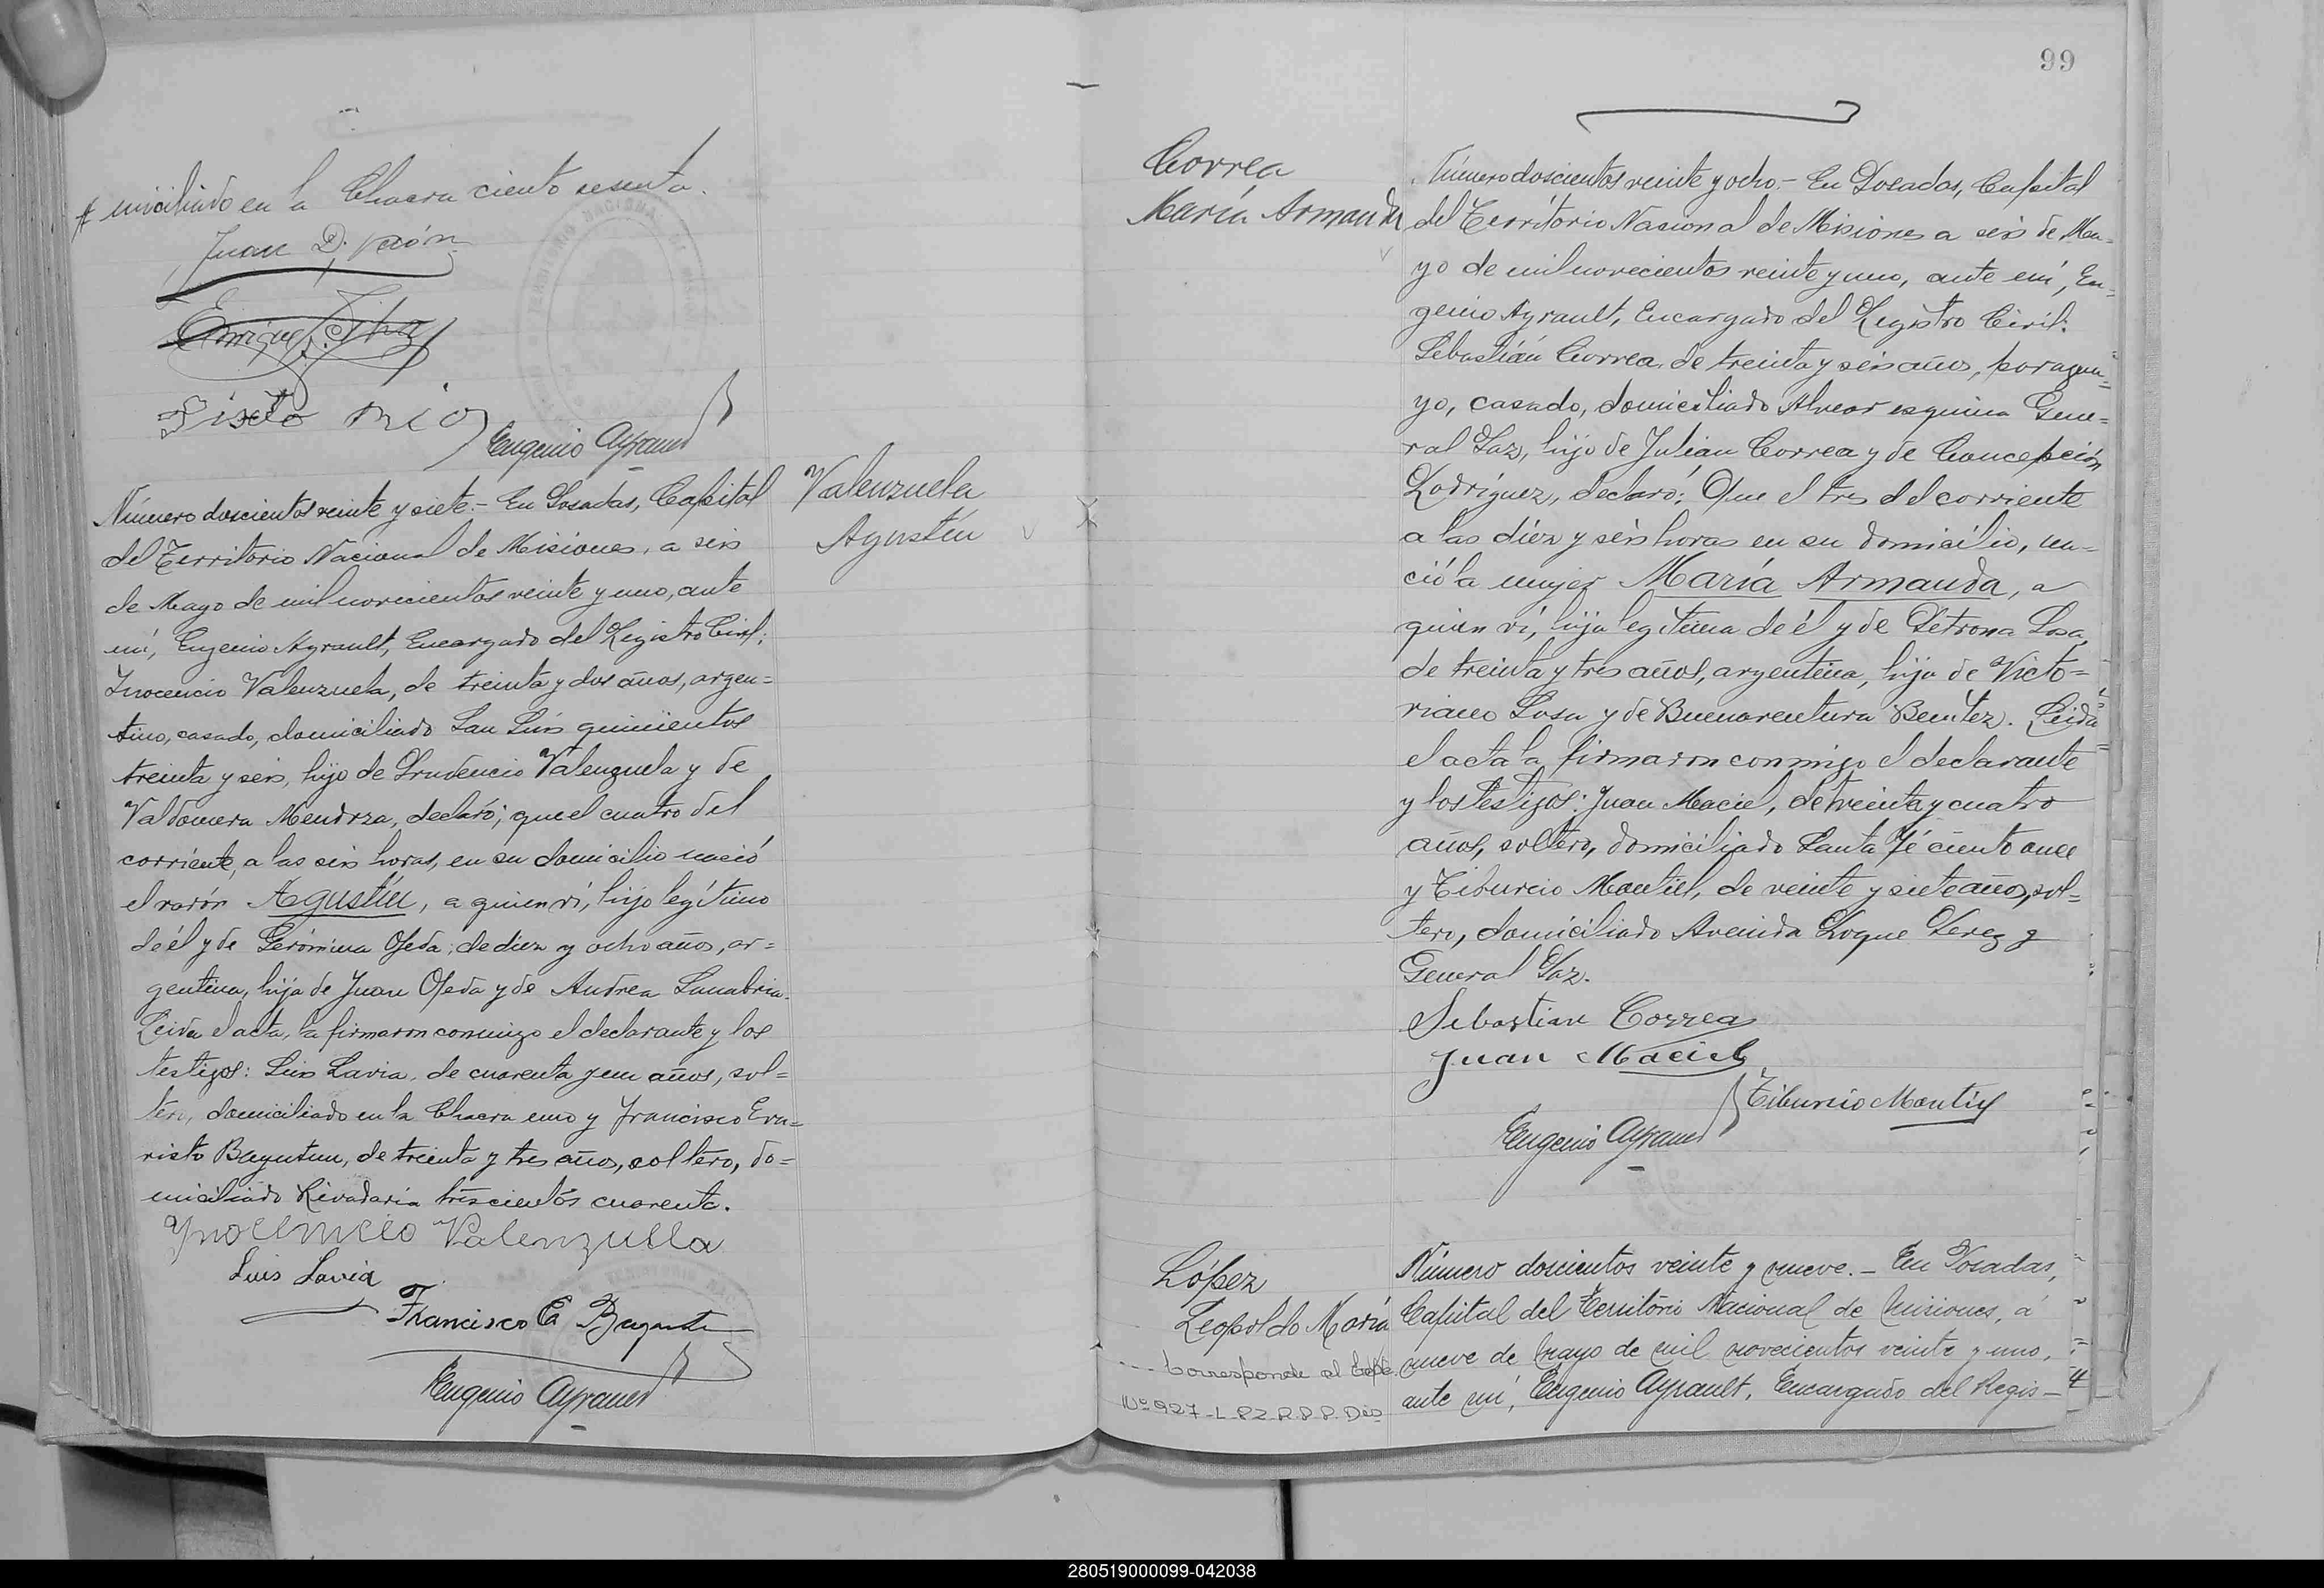 miciliado en la Chacra ciento sesenta.
Juan D.
Enrique
Sixto Rio
Eugenio Ayrault
Valenzuela
Agustín
Número doscientos veinte y siete.- En Posadas, Capital
del Territorio Nacional de Misiones, a seis
de Mayo de mil novecientos veinte y uno, ante
mí, Eugenio Ayrault, Encargado del Registro Civil;
Inocencio Valenzuela, de treinta y dos años, argen=
tino, casado, domiciliado San Luis quinientos
treinta y seis, hijo de Prudencio Valenzuela y de
Valdomera Mendoza, declaró; que el cuatro del
corriente, a las seis horas, en su domicilio nació
el varón Agustín, a quien ví, hijo legítimo
de él y de Gerónima Ojeda, de diez y ocho años, ar=
gentina, hija de Juan Ojeda y de Andrea Sanabria.
Leida el acta, la firmaron conmigo el declarante y los
testigos: Luis Lavia, de cuarenta y un años, sol=
tero, domiciliado en la Chacra uno y Francisco Eva=
risto, de treinta y tres años, soltero, do=
miciliado Rivadavia trescientos cuarenta.
Ynocencio Valenzuela
Luis Lavia
Francisco E
Eugenio Ayrault
99
Correa
María Armanda
Número doscientos veinte y ocho.- En Posadas, Capital
del Territorio Nacional de Misiones a seis de Ma=
yo de mil novecientos veinte y uno, ante mí, Eu=
genio Ayrault, Encargado del Registro Civil:
Sebastián Correa, de treinta y seis años, paragua=
yo, casado, domiciliado Alvear esquina Gene=
ral Paz, hijo de Julián Correa y de Concepción
Rodríguez, declaró: Que el tres del corriente
a las diez y seis horas en su domicilio, na=
ció la mujer María Armanda, a
quien ví, hija legítima de él y de Petrona Sosa,
de treinta y tres años, argentina, hija de Victo=
riano Sosa y de Buenaventura Benítez. Leida
el acta la firmaron conmigo el declarante
y los testigos: Juan Maciel, de treinta y cuatro
años, soltero, domiciliado Santa Fé ciento once
y Tiburcio Montiel, de veinte y siete años, sol=
tero, domiciliado Avenida Roque Perez y
General Paz.
Sebastian Correa
Juan Maciel
Tiburcio Montiel
Eugenio Ayrault
López
Leopoldo María
Corresponde al Expte.
Nº 927
Número doscientos veinte y nueve.- En Posadas,
Capital del Territorio Nacional de Misiones, á
nueve de Mayo de mil novecientos veinte y uno,
ante mí, Eugenio Ayrault, Encargado del Regis-
280519000099-042038